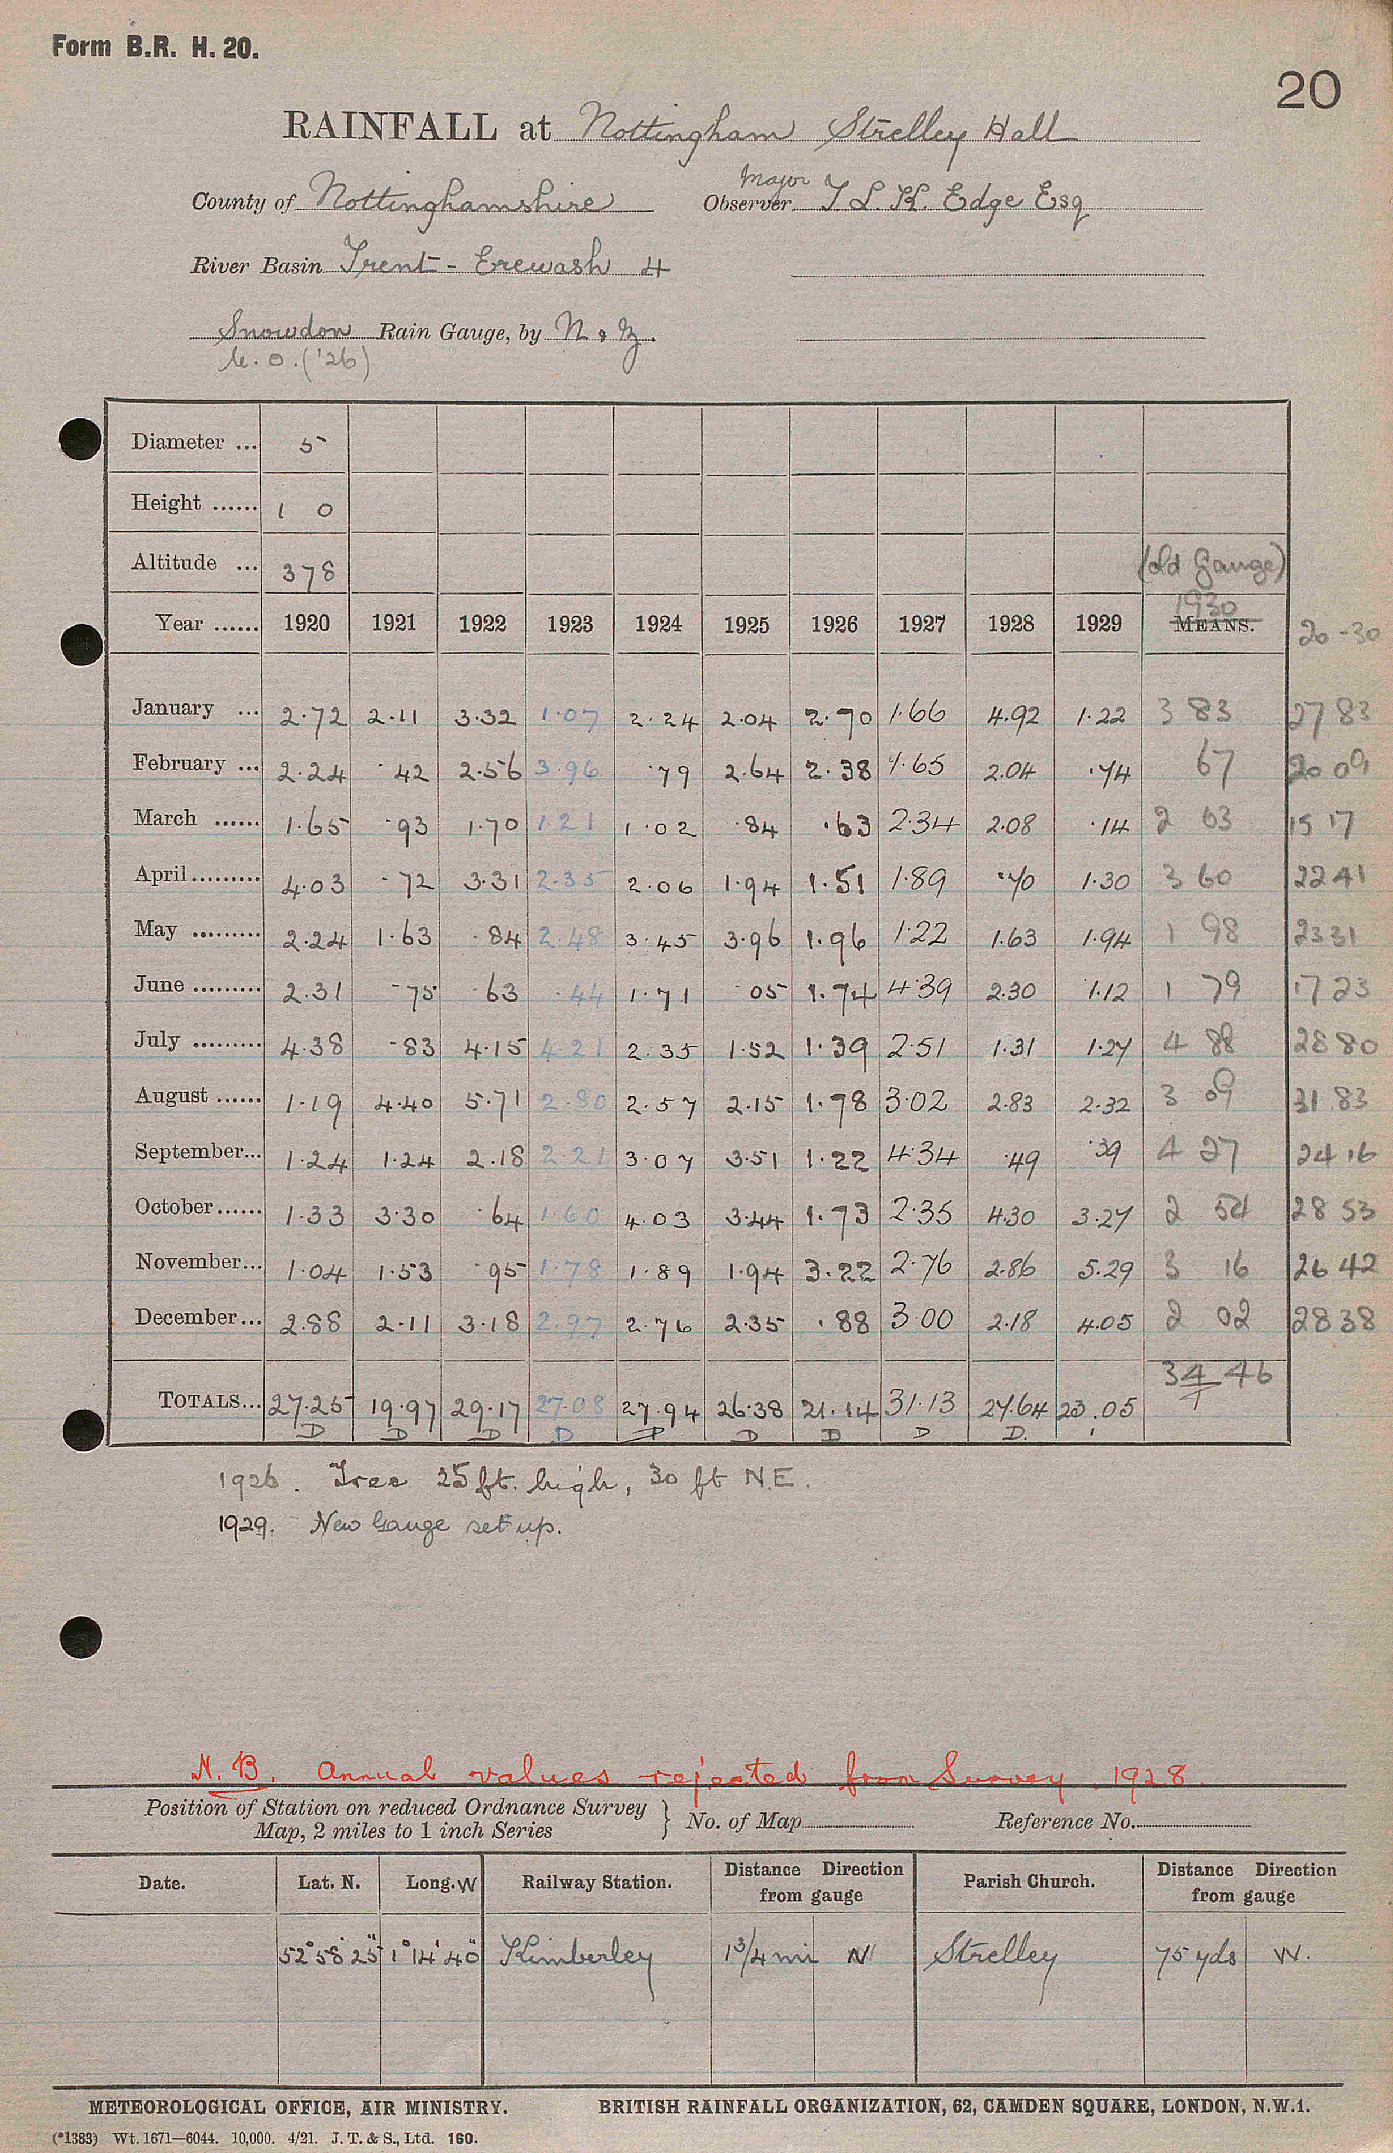 Form B.R. H. 20.
20
RAINFALL at Nottingham Strelley Hall
County of Nottinghamshire Observer Major T L. K. Edge Esq
River Basin Trent - Erewash 4
Snowdon Rain Gauge, by N & Z.
M.O. ('26)
Diameter ... 5
Height ...... 1 0
Altitude ... 378 (old gauge)
Year ...... 1920 1921 1922 1923 1924 1925 1926 1927 1928 1929 1930 MEANS. 20-30
January ... 2.72 2.11 3.32 1.07 2.24 2.04 2.70 1.66 4.92 1.22 3 83 27 83
February ... 2.24 .42 2.56 3.96 .79 2.64 2.38 1.65 2.04 .74 67 20 09
March ...... 1.65 .93 1.70 1.21 1.02 .84 .63 2.34 2.08 .14 2 63 15 17
April ......... 4.03 .72 3.31 2.35 2.06 1.94 1.51 1.89 .70 1.30 3 60 22 41
May ......... 2.24 1.63 .84 2.48 3.45 3.96 1.96 1.22 1.63 1.94 1 98 23 31
June ......... 2.31 .75 .63 .44 1.71 .05 1.74 4.39 2.30 1.12 1 79 17 23
July ......... 4.38 .83 4.15 4.21 2.35 1.52 1.39 2.51 1.31 1.27 4 88 28 80
August ...... 1.19 4.40 5.71 2.80 2.57 2.15 1.78 3.02 2.83 2.32 3 09 31 83
September... 1.24 1.24 2.18 2.21 3.07 3.51 1.22 4.34 .49 .39 4 27 24 16
October ...... 1.33 3.30 .64 1.60 4.03 3.44 1.73 2.35 4.30 3.27 2 54 28 53
November... 1.04 1.53 .95 1.78 1.89 1.94 3.22 2.76 2.86 5.29 3 16 26 42
December... 2.88 2.11 3.18 2.97 2.76 2.35 .88 3.00 2.18 4.05 2 02 28 38
TOTALS... 27.25 19.97 29.17 27.08 27.94 26.38 21.14 31.13 27.64 23.05 34 46
D D D D D D D D D.
1926. Tree 25 ft. high, 30 ft N.E.
1929. New Gauge set up.
N.B. Annual values rejected from Survey 1928.
Position of Station on reduced Ordnance Survey Map, 2 miles to 1 inch Series } No. of Map Reference No.
Date. Lat. N. Long. W Railway Station. Distance Direction from gauge Parish Church. Distance Direction from gauge
52° 58' 25" 1° 14' 40" Kimberley 1 3/4 mi N Strelley 75 yds W.
METEOROLOGICAL OFFICE, AIR MINISTRY. BRITISH RAINFALL ORGANIZATION, 62, CAMDEN SQUARE, LONDON, N.W.1.
(*1383) Wt. 1671—6044. 10,000. 4/21. J. T. & S., Ltd. 160.